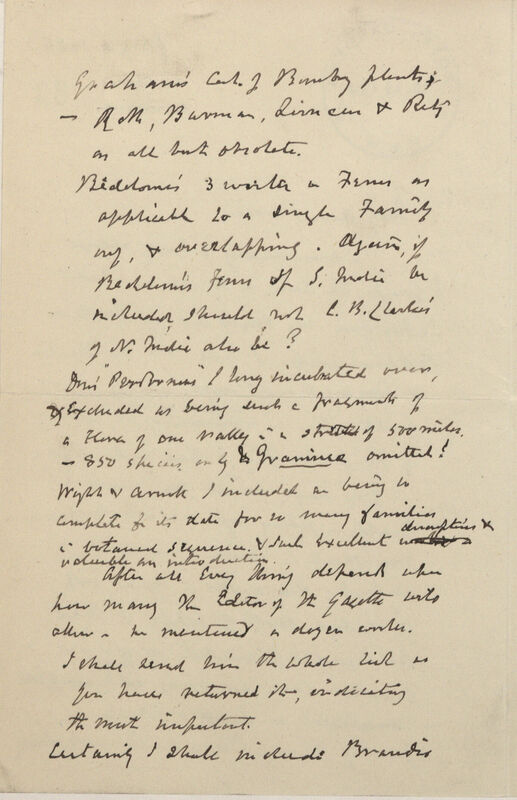 Graham's Cat. of Bombay plants;
— Roth, Burman, Linnaeus & Retz
as all but obsolete.
Beddome's 3 works on Ferns as
applicable to a single Family
only, & overlapping. Again, if
Beddome's Ferns of S. India be
included, should not C. B. Clarke's
of N. India also be?
I long incubated over,
& excluded as being such a fragment of
a Flora of one Valley in a stretch of 500 miles.
— 850 species only & Gramineae omitted!
Wight & Arnott I included as being so
complete to its date for so many families
in botanical sequence, & such excellent descriptions &
valuable an introduction.
After all every thing depends upon
how many the Editor of the Gazette will
allow — he mentioned a dozen works.
I shall send him the whole list as
you have returned it, indicating
the most important.
Certainly I shall include Brandis